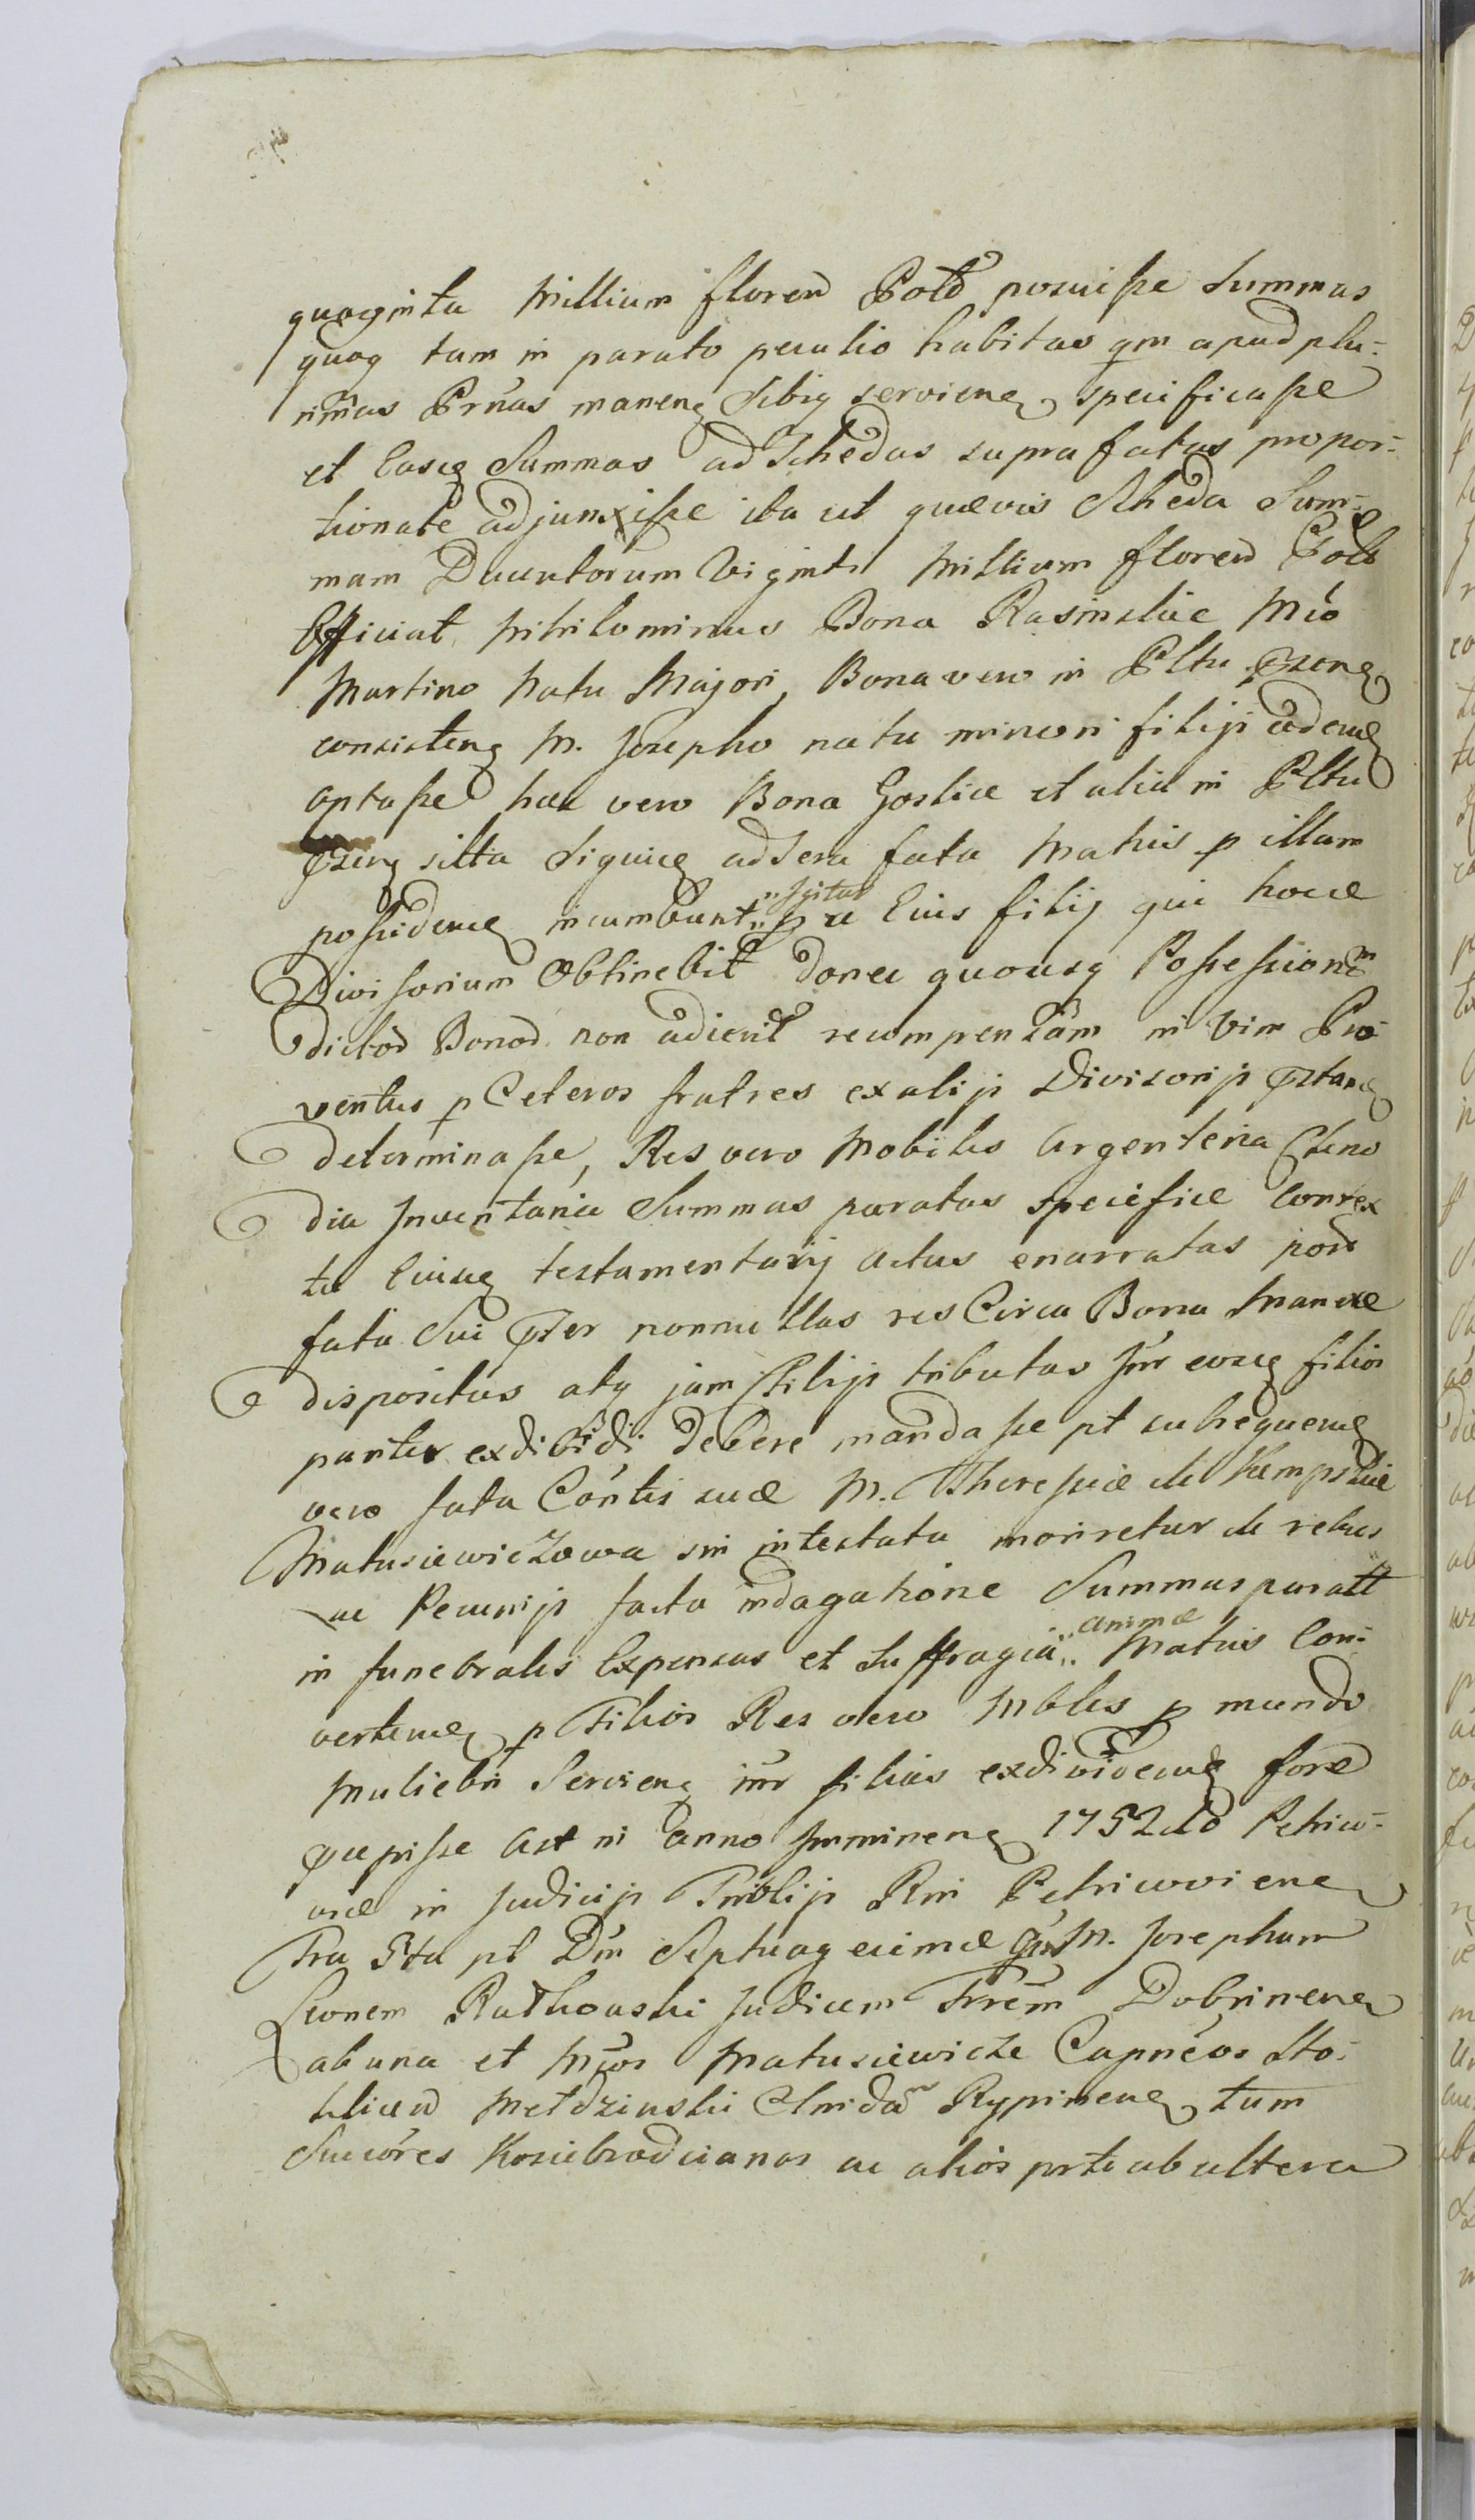 quaginta Millium floren Pold posuisse Summas
quaq tam in parato peculio habitas qm apud plu-
rimas Prnas manenq Sibiq servienq specificasse
et Easq Summas ad Schedas suprafatas propor-
tionate adjunxisse ita ut quævis Scheda Sum-
mam Ducentorum Viginti Millium floren Pold
Efficiat, Nihilominus Bona Rasinskie Mco
Martino Natu Majori, Bona vero in Pltu
consistenq M. Josepho natu minori filijs
optasse hæc vero Bona Goslice et alia in Pltu
sitta ad sera fata Matris p illam
possidenq incumbunt igitur p Eius filij qui hocce
Divisorium Obtinebit donec quousq Possessionem
dictod Bonod non adierit recompensam in Vim Pro-
ventus p Ceteros fratres ex alijs Divisorijs
determinasse, Res vero Mobiles Argenteria Cleno
dia Inventaria Summas paratas specifice Contex
tu testamentarij Actus enarratas post
fata Sui pter nonnullas res Circa Bona Manere
dispositas atq jam Filijs tributas Inr eosq filios
pariter exdividi debere mandasse pt subsequenq
vero fata Contis suæ M. Theressiæ de Kempskie
Matusiewiczowa sin intestata moriretur de rebus
ac Pecunijs facta indagatione Summas paratt
in funebrales Expensas et Suffragia animæ Matris Con-
vertenq p Filios Res vero Mbles p mundo
Muliebri Servienq inr filias exdividenq fore
præpisse Ast in Anno Imminenq 1752do Petrico-
viæ in Judicijs Triblijs Rni Petricovienq
Fra 5ta pt Dm Septuagesimæ M. Josephum
Leonem Rutkowski Judicem Trrem Dobrinenq
ab una et Mcos Matusiewicze Capneos Sto-
Metdzinski Rypinenq tum
Succores Kosiebrodcianos ac alios prte ab altera